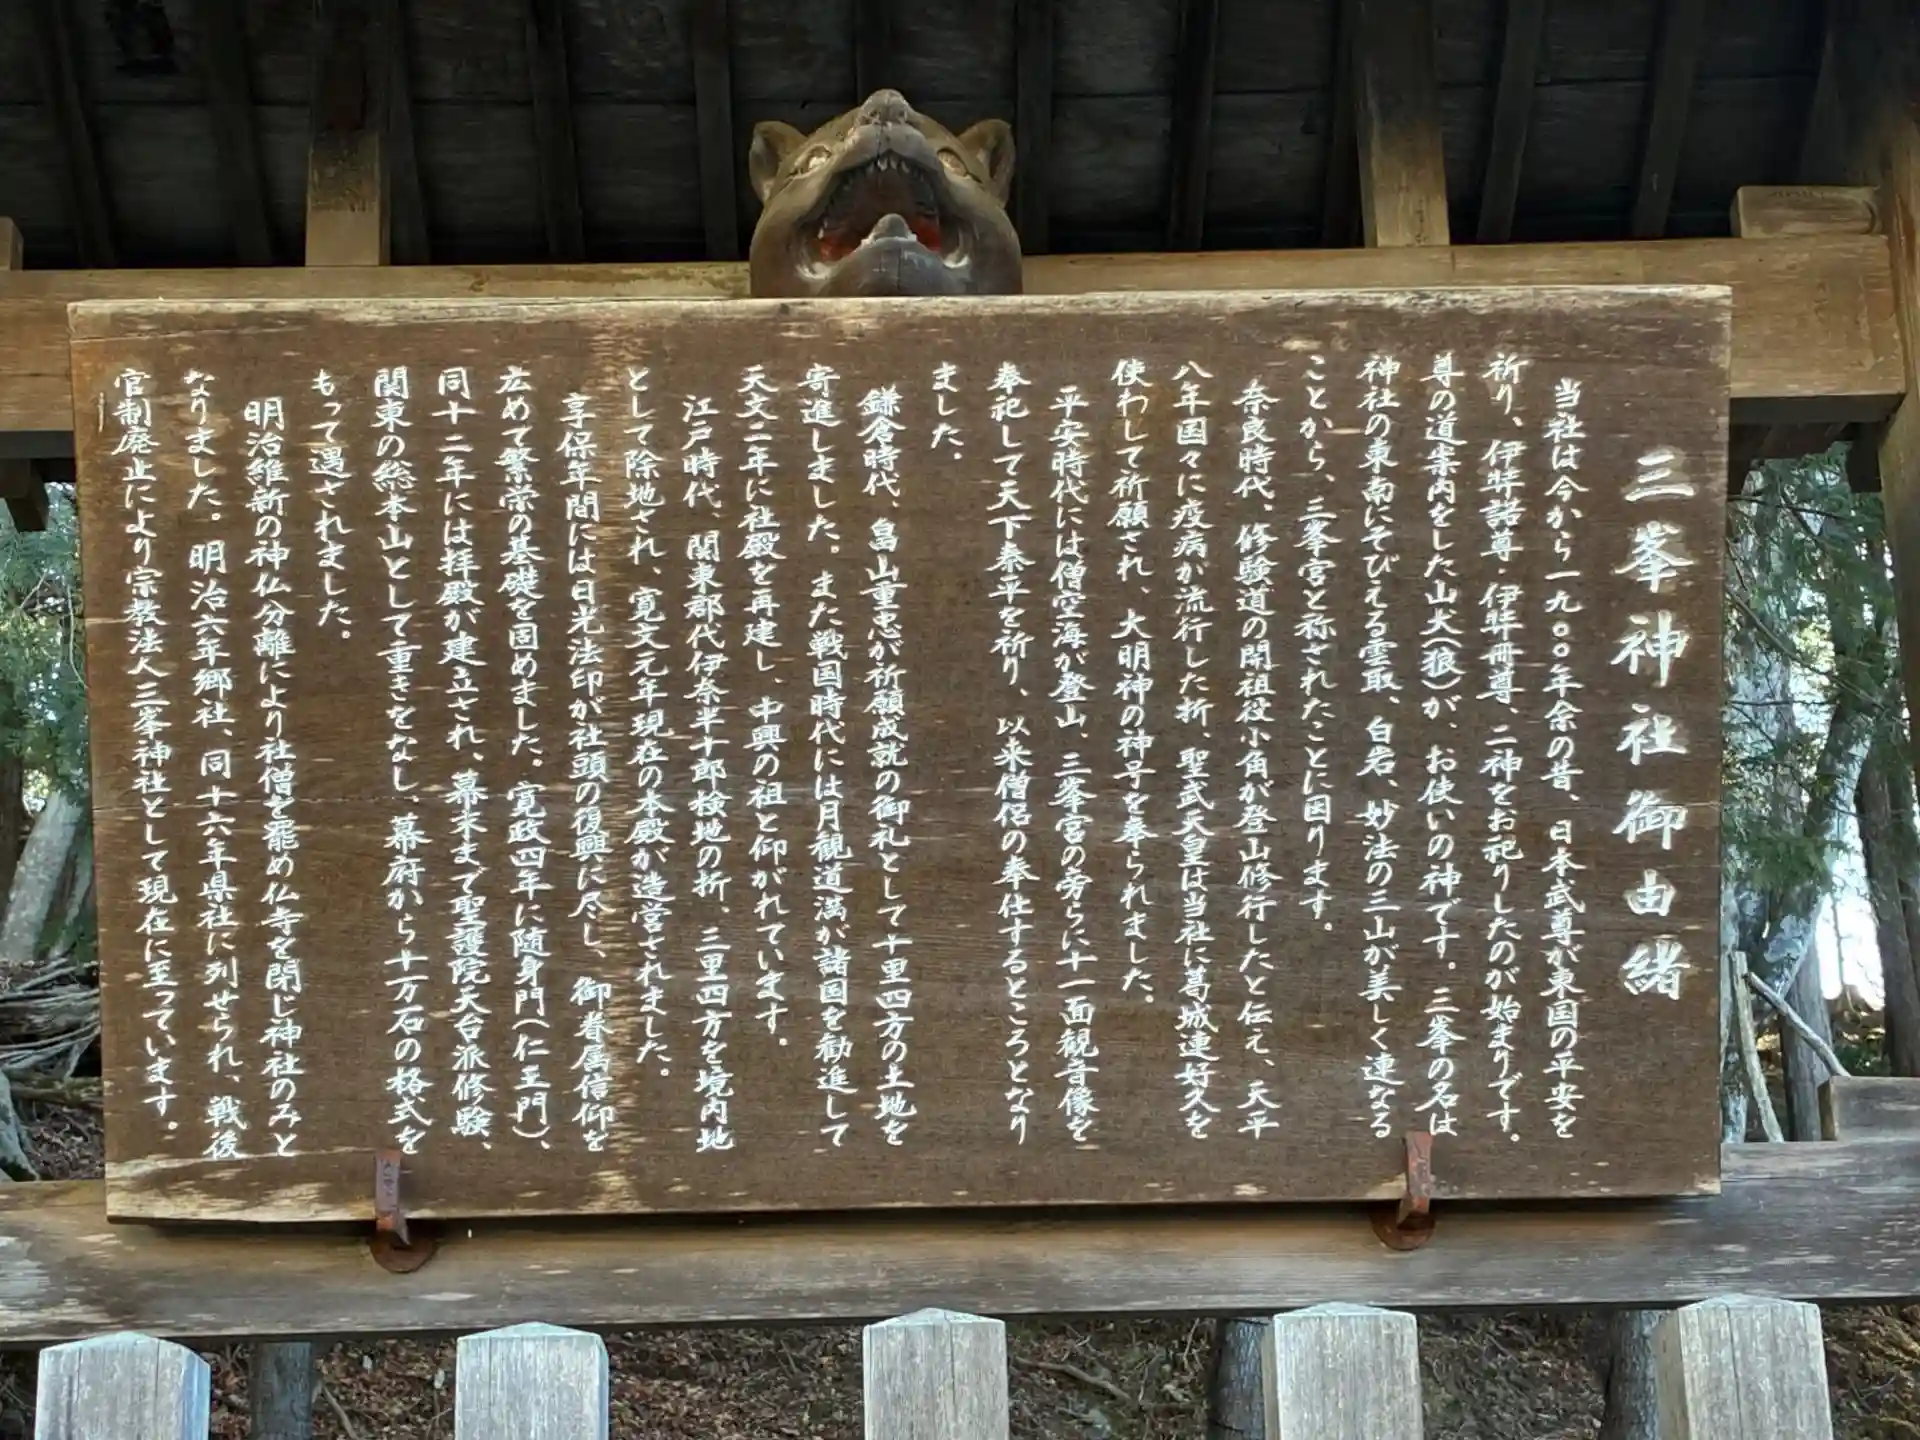 三峯神社御由緒
当社は今から一九〇〇年余の昔、日本武尊が東国の平安を
祈り、伊弉諾尊・伊弉冊尊、二神をお祀りしたのが始まりです。
尊の道案内をした山犬(狼)が、お使いの神です。三峯の名は
神社の東南にそびえる雲取、白岩、妙法の三山が美しく連なる
ことから、三峯宮と称されたことに因ります。
奈良時代、修験道の開祖役小角が登山修行したと伝え、天平
八年国々に疫病が流行した折、聖武天皇は当社に葛城連好久を
使わして祈願され、大明神の神号を奉られました。
平安時代には僧空海が登山、三峯宮の旁らに十一面観音像を
奉祀して天下泰平を祈り、以来僧侶の奉仕するところとなり
ました。
鎌倉時代、畠山重忠が祈願成就の御礼として十里四方の土地を
寄進しました。また戦国時代には月観道満が諸国を勧進して
天文二年に社殿を再建し、中興の祖と仰がれています。
江戸時代、関東郡代伊奈半十郎検地の折、三里四方を境内地
として除地され、寛文元年現在の本殿が造営されました。
享保年間には日光法印が社頭の復興に尽し、御眷属信仰を
広めて繁栄の基礎を固めました。寛政四年に随身門(仁王門)、
同十二年には拝殿が建立され、幕末まで聖護院天台派修験、
関東の総本山として重きをなし、幕府から十万石の格式を
もって遇されました。
明治維新の神仏分離により社僧を罷め仏寺を閉じ神社のみと
なりました。明治六年郷社、同十六年県社に列せられ、戦後
官制廃止により宗教法人三峯神社として現在に至っています。